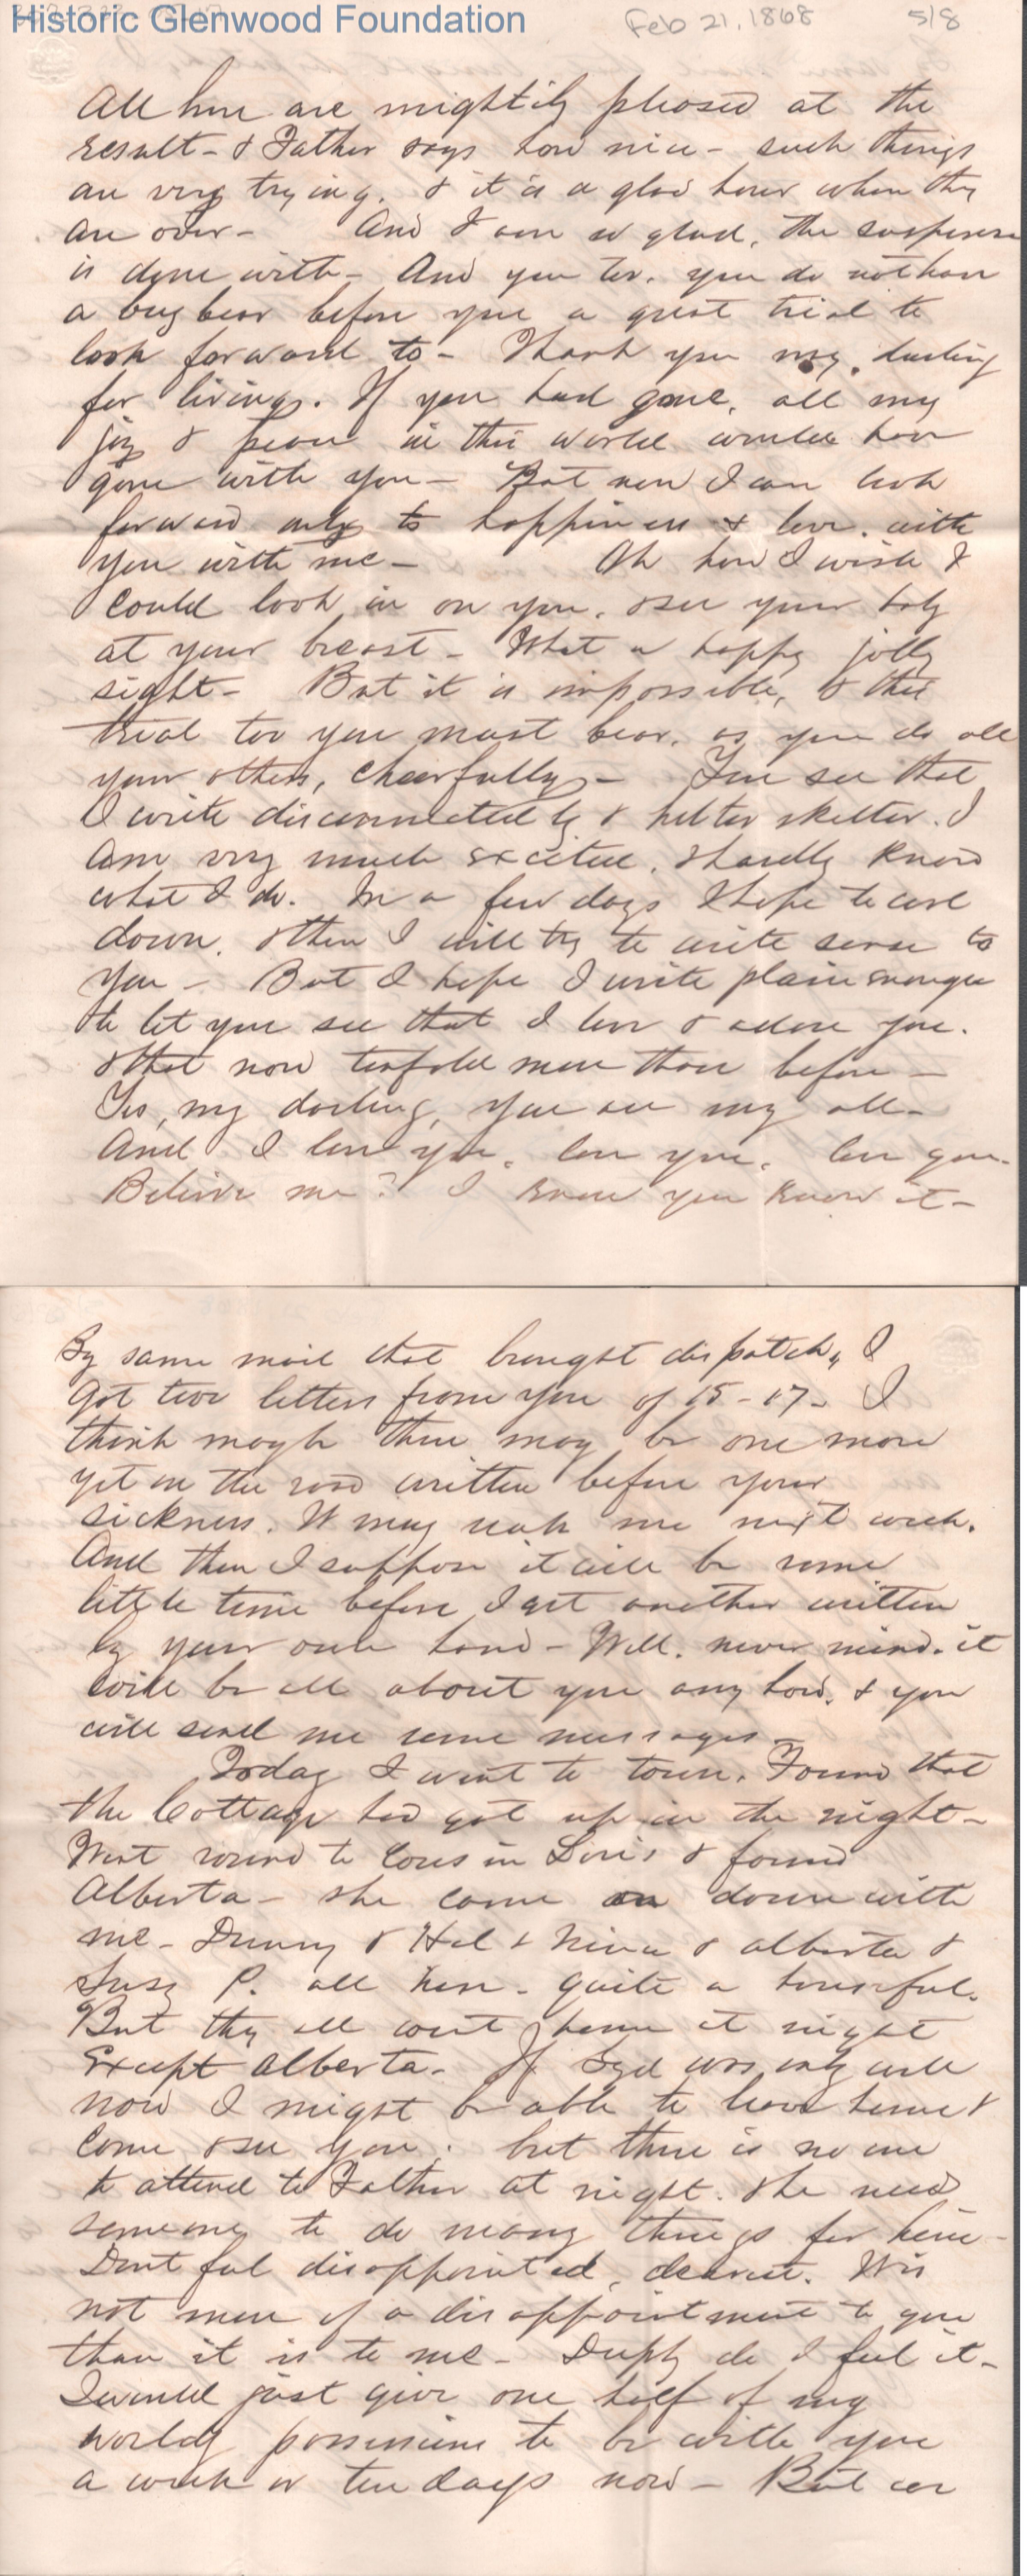 Historic Glenwood Foundation
Feb 21, 1868 5/8
All here are mightily pleased at the
result - & Father says how nice - such things
are very trying. & it is a glad hour when they
are over - And I am so glad, the suspense
is done with - And you too. you do not have
a bug bear before you a great trial to
look forward to - Thank you my darling
for living. If you had gone, all my
joy & peace in this world would have
gone with you - But now I can look
forward only to happiness & love. with
you with me - Oh how I wish I
could look in on you. & see your baby
at your breast - What a happy jolly
sight - But it is impossible, & this
trial too you must bear. as you do all
your others, cheerfully - You see that
I write disconnectedly & helter skelter. I
am very much excited. & hardly know
what I do. In a few days I hope to cool
down. & then I will try to write sense to
you - But I hope I write plain enough
to let you see that I love & adore you.
& that now tenfold more than before -
Yes, my darling, you are my all -
And I love you. love you. love you -
Believe me? I know you know it -
By same mail that brought dispatch, I
got two letters from you of 15 - 17 - I
think maybe there may be one more
yet on the road written before your
sickness. It may reach me next week.
And then I suppose it will be some
little time before I get another written
by your own hand - Well. never mind. it
will be all about you any how, & you
will send me some messages -
Today I went to town. Found that
the Cottage had got up in the night -
Went round to Cousin & found
Alberta - she came on down with
me - & Hal & Nina & Alberta &
Susy P. all here - quite a houseful.
But they all went home at night
Except Alberta. If Syd was only well
now I might be able to leave home &
come & see you. but there is no one
to attend to Father at night. & he needs
someone to do many things for him -
Dont feel disappointed, dearest. Tis
not more of a disappointment to you
than it is to me - Deeply do I feel it -
I would just give one half of my
worldly possessions to be with you
a week or ten days now - But we